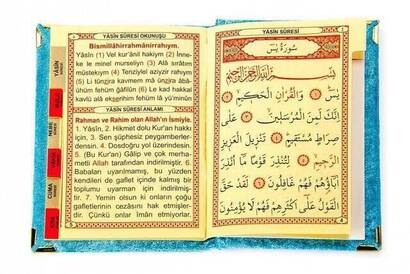 YÂSÎN SÛRESİ OKUNUŞU
Bismillâhirrahmânirrahıym.
Yâsîn (1) Vel kur'ânil hakiym (2) İnne-
ke le minel murseliyn (3) Alâ sırâtım
müstekıym (4) Tenziylel aziyzir rahıym
(5) Li tünzira kavmem mâ ünzira âbâ-
ühüm fehüm ğâfilûn (6) Le kad hakkal
kavlü alâ ekserihim fehüm lâ yü'minûn
YÂSÎN SÛRESİ ANLAMI
Rahman ve Rahim olan Allah'ın İsmiyle.
1. Yâsîn, 2. Hikmet dolu Kur'an hakkı
için, 3. Sen şüphesiz peygamberler-
densin. 4. Dosdoğru yol üzerindesin.
5. (Bu Kur'an) Gâlip ve çok merha-
metli Allah tarafından indirilmiştir. 6.
Babaları uyarılmamış, bu yüzden
kendileri de gaflet içinde kalmış bir
toplumu uyarman için indirilmiş-
tir. 7. Yemin olsun ki onların çoğu
gafletlerinin cezasını hak etmişler-
dir. Çünkü onlar îmân etmiyorlar.
YÂSÎN
CUMA
YÂSÎN SÛRESİ
سُورَةُ يٰسٓ
بِسْمِ اللّٰهِ الرَّحْمٰنِ الرَّحِيمِ
يٰسٓ ﴿١﴾ وَالْقُرْاٰنِ الْحَكِيمِ ﴿٢﴾
اِنَّكَ لَمِنَ الْمُرْسَلِينَ ﴿٣﴾ عَلٰى
صِرَاطٍ مُسْتَقِيمٍ ﴿٤﴾ تَنْزِيلَ الْعَزِيزِ
الرَّحِيمِ ﴿٥﴾ لِتُنْذِرَ قَوْمًا مَٓا اُنْذِرَ
اٰبَٓاؤُهُمْ فَهُمْ غَافِلُونَ ﴿٦﴾ لَقَدْ حَقَّ
الْقَوْلُ عَلٰٓى اَكْثَرِهِمْ فَهُمْ لَا يُؤْمِنُونَ